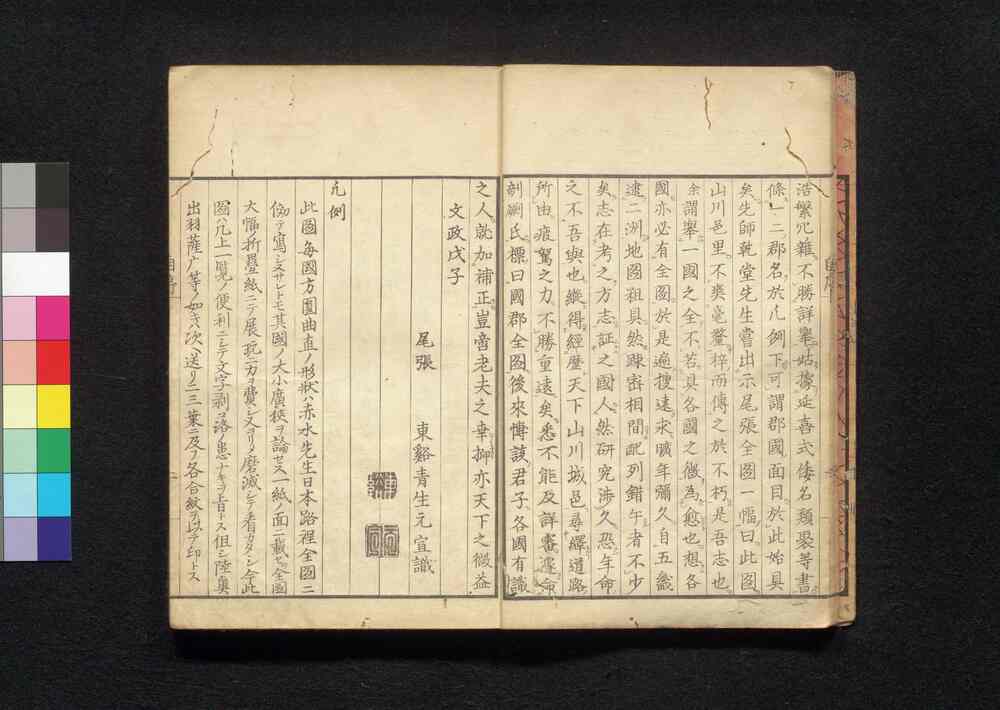 浩繁冗雜不勝詳舉姑據延喜式倭名類聚等書
條一二郡名於凡例下可謂郡國面目於此始具
矣先師乾堂先生嘗出示尾張全圖一幅曰此圖
山川邑里不爽毫釐梓而傳之於不朽是吾志也
余謂舉一國之全不若具各國之儆為愈也想各
國亦必有全圖於是遍搜遠求曠年彌久自五畿
逮二洲地圖粗具然踈密相間配列錯午者不少
矣志在考之方志証之國人然研究涉久恐年命
之不吾與也縱得經歷天下山川城邑尋繹道路
所由疲駑之力不勝重遠矣悉不能及詳審遽命
剞劂氏標曰國郡全圖後來博該君子各國有識
之人就加補正豈啻老夫之幸抑亦天下之微益
文政戊子
尾張 東谿青生元宣識
凡例
此圖每國方圓曲直ノ形狀ハ赤水先生日本路程全圖ニ
傚テ寫シヌサレトモ其國ノ大小廣狹ヲ論セス一紙ノ面ニ載セ全國
大幅折疊紙ニテ展玩ニ力ヲ費シ又ヲリメ磨滅シテ看カタシ今此
圖ハ几上一覽ノ便利ニシテ文字剥落ノ患ナキヲ旨トス但シ陸奧
出羽薩广等ノ如キハ次ヘ送リ二三葉ニ及フ各合紋ヲ以テ印トス
自序